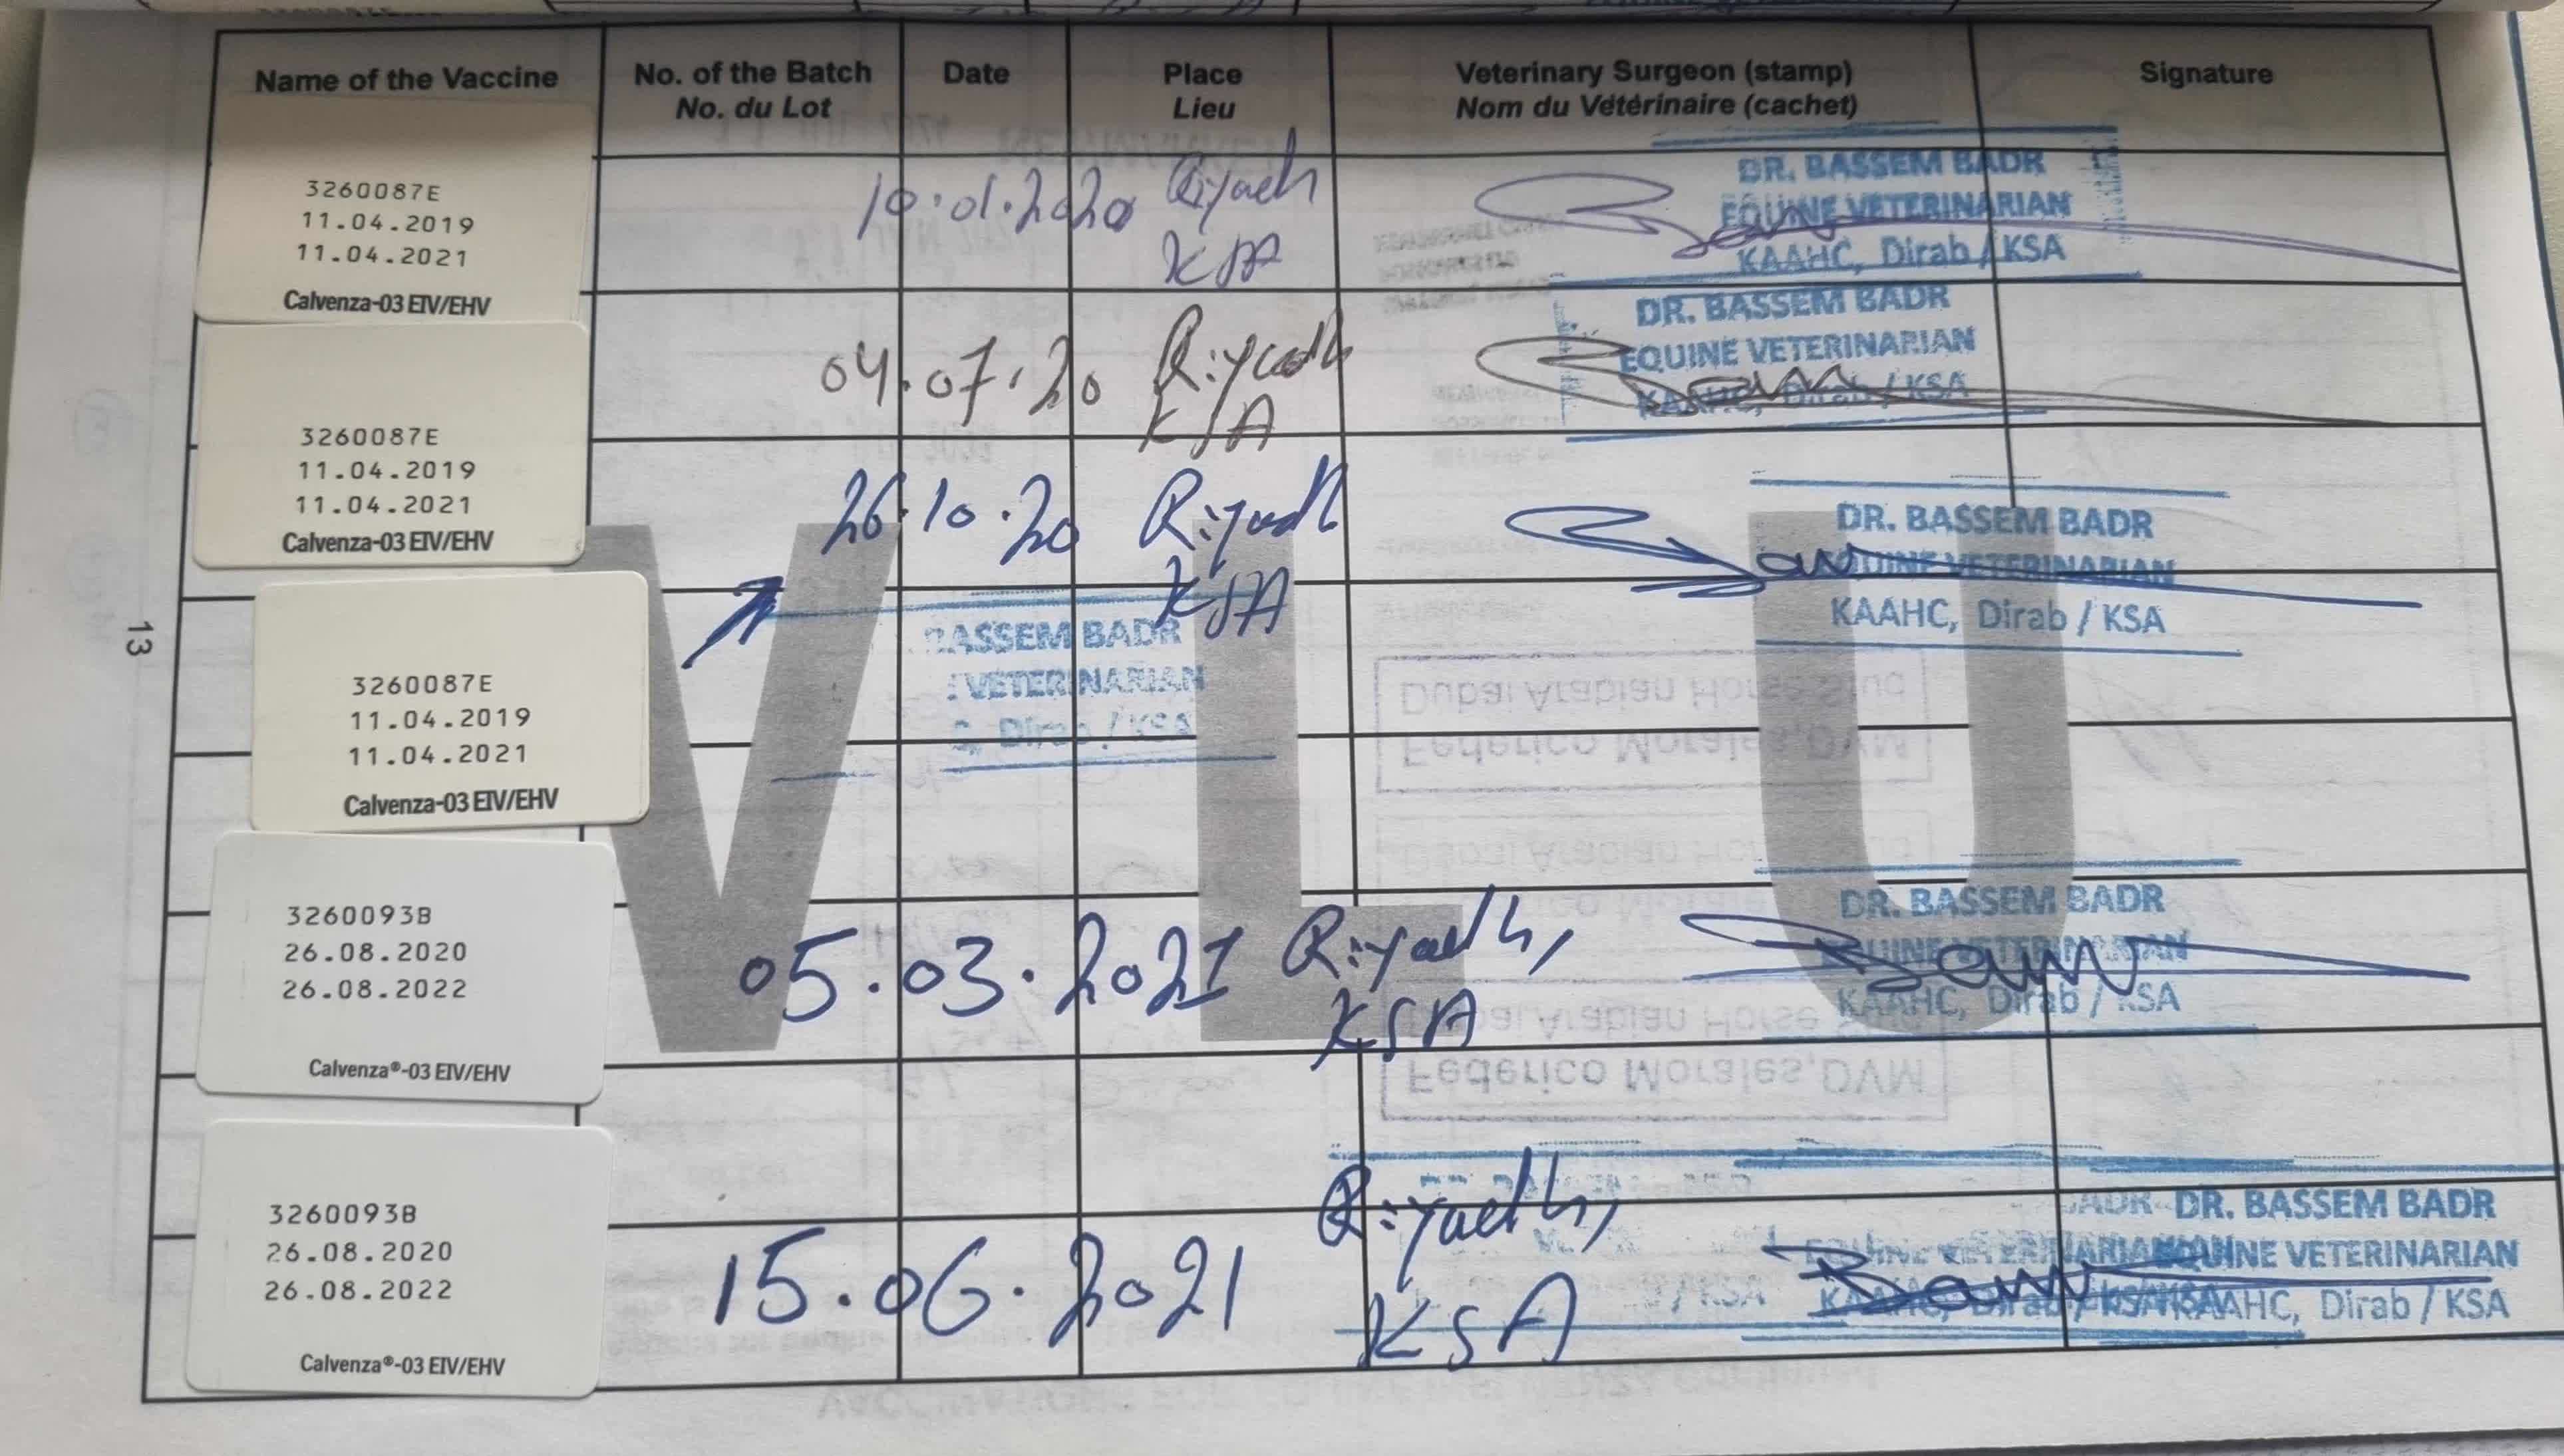 Name of the Vaccine
No. of the Batch
No. du Lot
Date
Place
Lieu
Veterinary Surgeon (stamp)
Nom du Vétérinaire (cachet)
Signature
3260087E
11.04.2019
11.04.2021
Calvenza-03 EIV/EHV
10.01.2020
Riyadh
KSA
DR. BASSEM BADR
EQUINE VETERINARIAN
KAAHC, Dirab / KSA
3260087E
11.04.2019
11.04.2021
Calvenza-03 EIV/EHV
04.07.20
Riyadh
KSA
DR. BASSEM BADR
EQUINE VETERINARIAN
KAAHC, Dirab / KSA
3260087E
11.04.2019
11.04.2021
Calvenza-03 EIV/EHV
26.10.20
Riyadh
KSA
DR. BASSEM BADR
EQUINE VETERINARIAN
KAAHC, Dirab / KSA
BASSEM BADR
VETERINARIAN
Dirab / KSA
V L U
Dubai Arabian Horse Stud
Federico Morales, DVM
3260093B
26.08.2020
26.08.2022
Calvenza®-03 EIV/EHV
05.03.2021
Riyadh,
KSA
DR. BASSEM BADR
EQUINE VETERINARIAN
KAAHC, Dirab / KSA
Federico Morales, DVM
3260093B
26.08.2020
26.08.2022
Calvenza®-03 EIV/EHV
15.06.2021
Riyadh,
KSA
DR. BASSEM BADR
EQUINE VETERINARIAN
KAAHC, Dirab / KSA
13